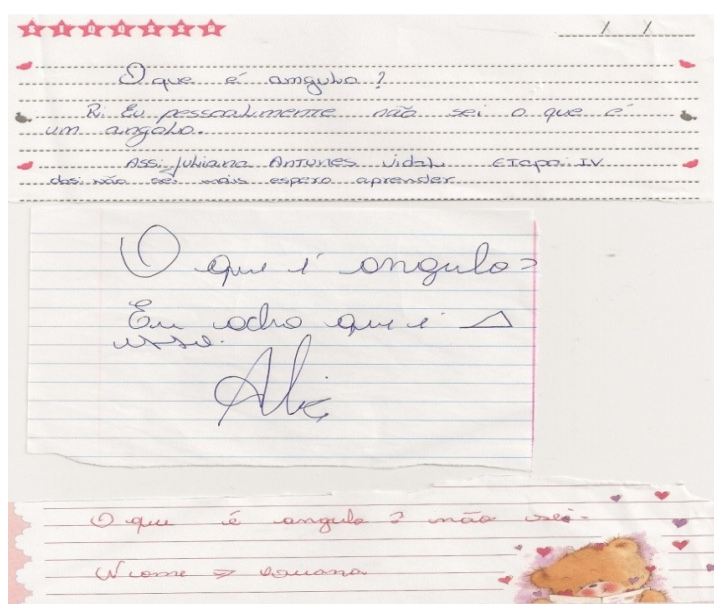 / /
O que é angulo?
R: Eu pessoalmente não sei o que é
um angolo.
Ass: Juliana Antunes Vidal Etapa IV
não sei mais espero aprender
O que é angulo?
Eu acho que é
isso.
O que é angulo? não sei.
Nome